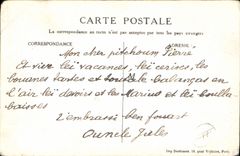 CARTE POSTALE
La correspondance au recto n'est pas acceptée par tous les pays étrangers
CORRESPONDANCE
ADRESSE
Mon cher pitchoun Pierre
Et vive leï vacances, leï cerises, les
bouenes tartes et les balançan en
l'air leï devoirs et le Marius et leï boulla
baïsses
T'embrasse ben fouert
Ouncle Jules